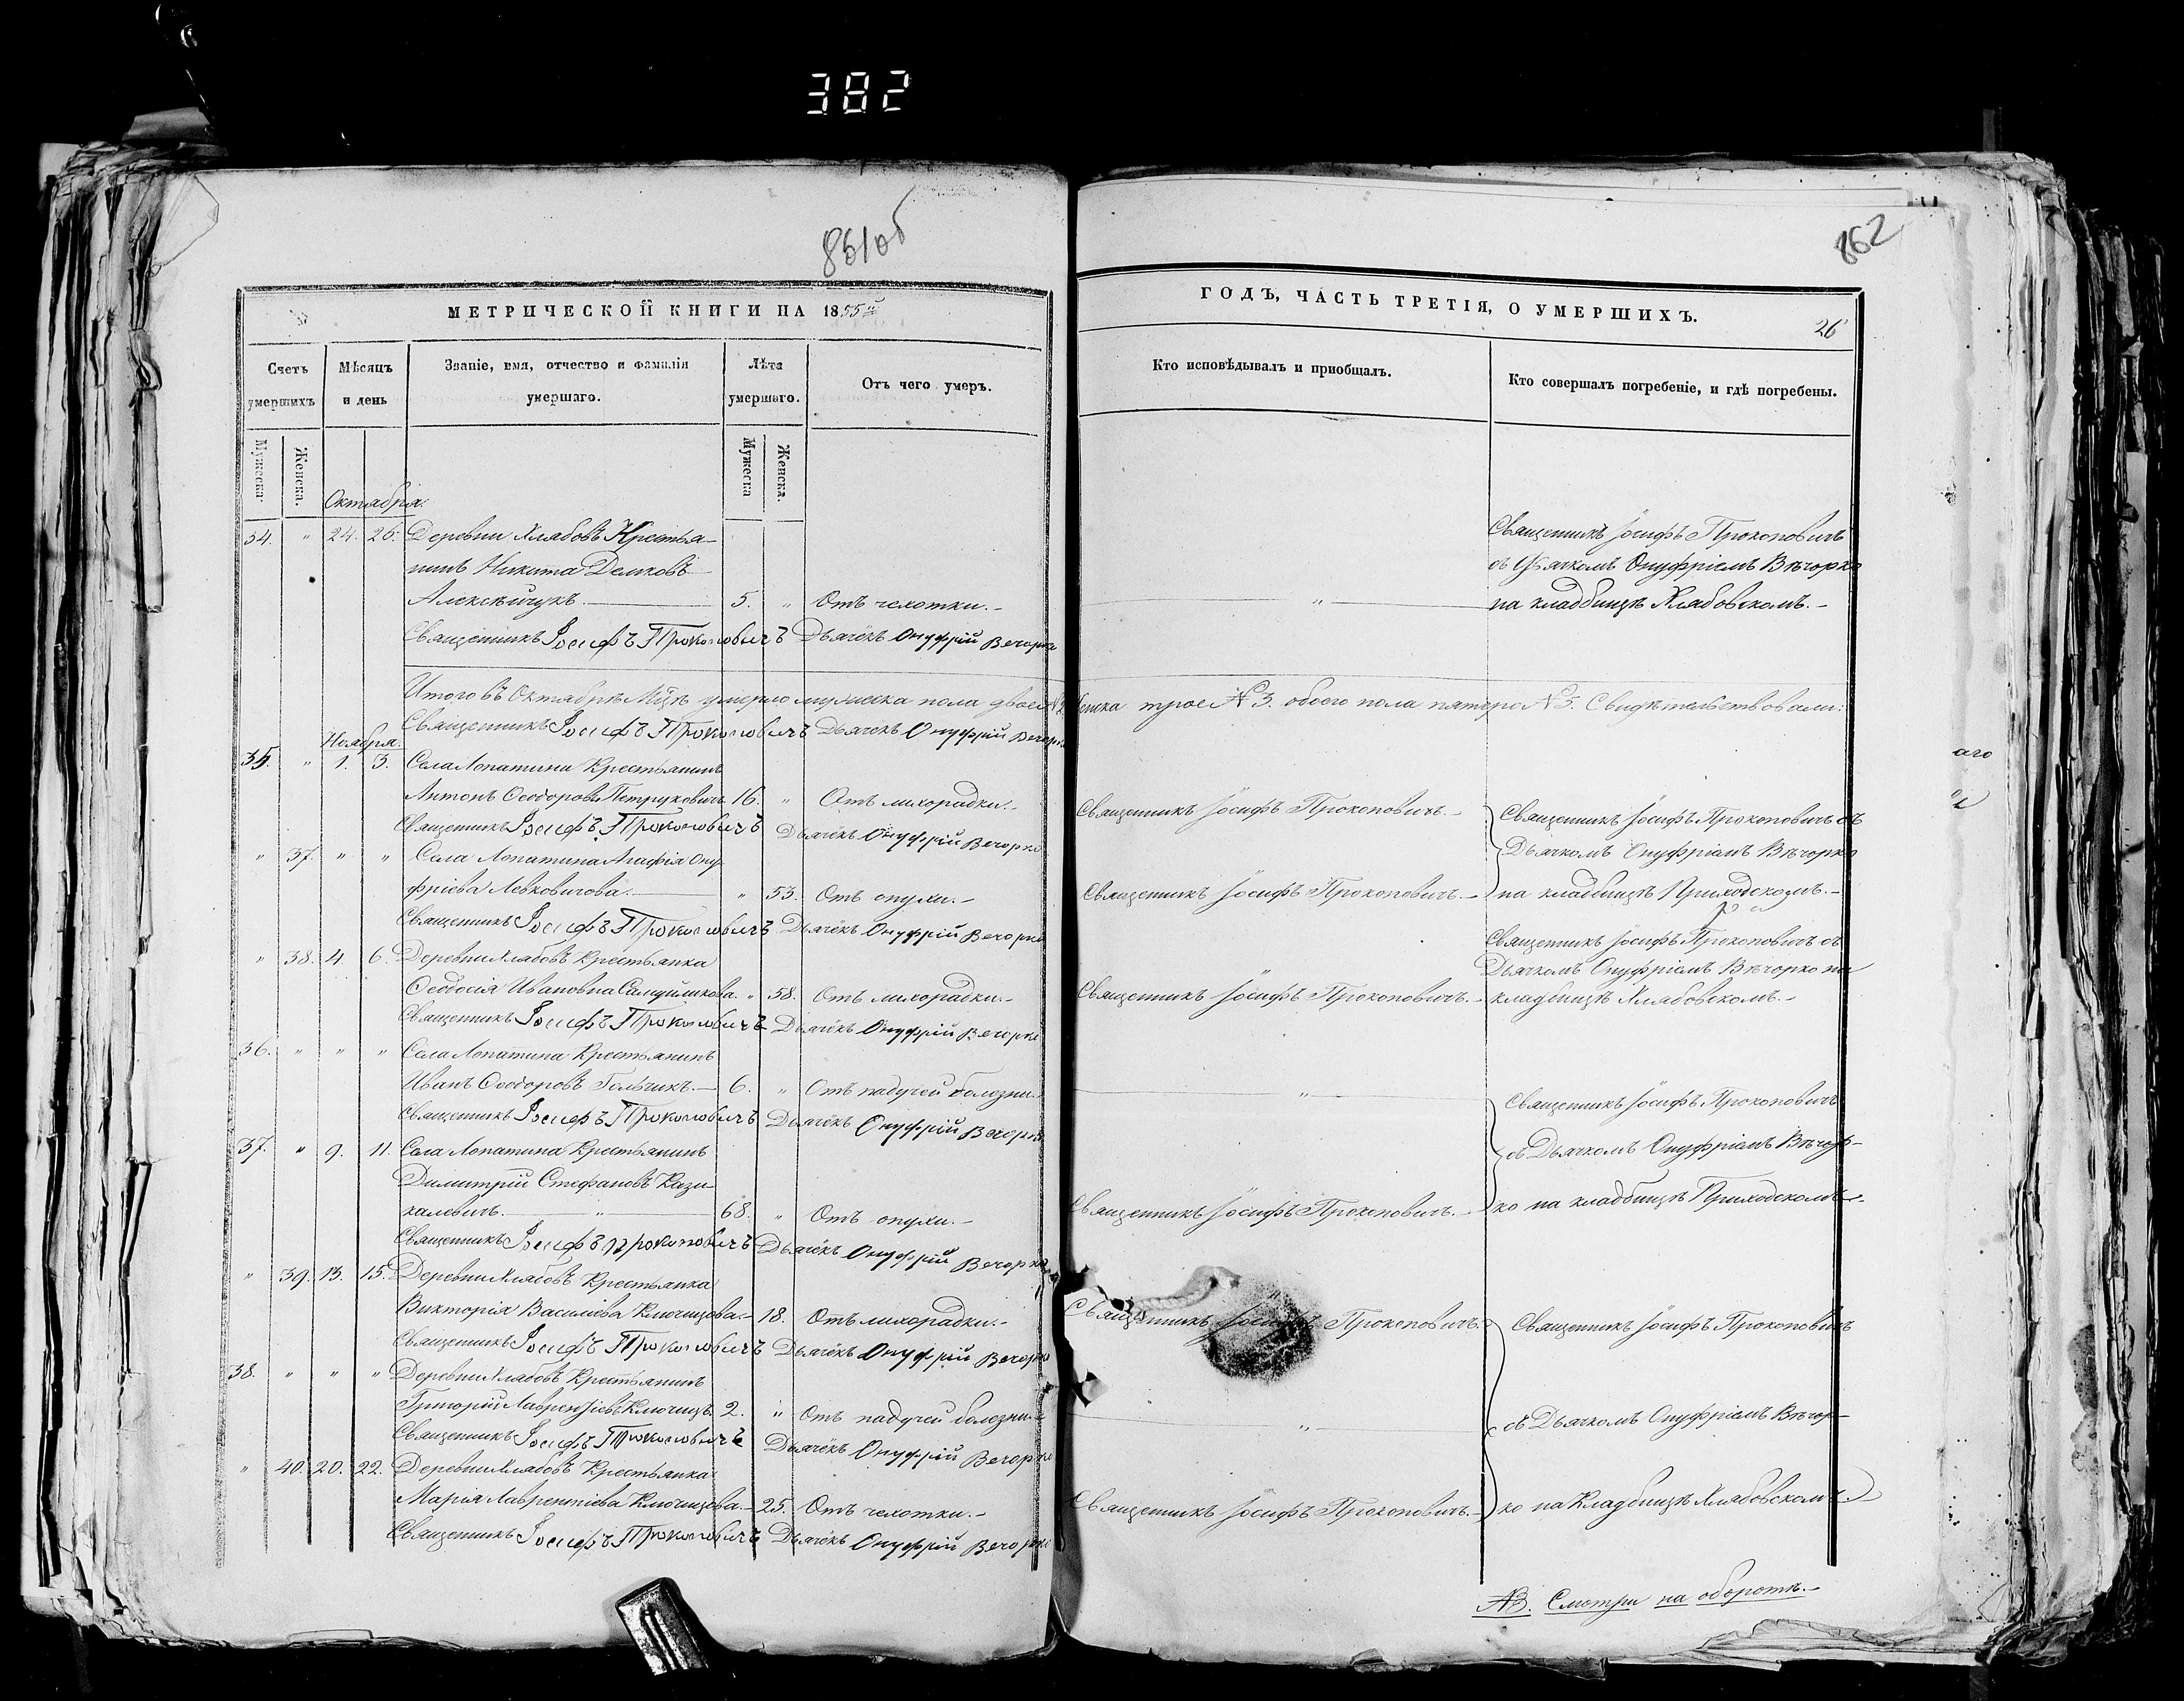 382
861об
862
МЕТРИЧЕСКОЙ КНИГИ НА 1855й
ГОДЪ, ЧАСТЬ ТРЕТІЯ, О УМЕРШИХЪ.
26
Счетъ умершихъ
Мѣсяцъ и день
Званіе, имя, отчество и фамилія умершаго.
Лѣта умершаго.
Отъ чего умеръ.
Кто исповѣдывалъ и приобщалъ.
Кто совершалъ погребеніе, и гдѣ погребены.
Мужеска.
Женска.
Мужеска
Женска.
Октября.
34. " 24. 26. Деревни Хлябовъ Крестья-
нинъ Никита Демковъ
Алексѣйчукъ. 5. " Отъ чехотки.- "
Священникъ Іосифъ Прокоповичъ
съ Дьячкомъ Онуфріемъ Вѣчорко
на кладбищѣ Хлябовскомъ.-
Священникъ Іосифъ Прокоповичъ Дьячёкъ Онуфрій Вечорко
Итого въ Октябрѣ Мцѣ умерло мужеска пола двое N2 женска трое N 3. обоего пола пятеро N 5. Свидѣтельствовали:
Священникъ Іосифъ Прокоповичъ Дьячёкъ Онуфрій Вечорко
Ноября.
35. " 1. 3. Села Лопатина Крестьянинъ
Антонъ Ѳеодоровъ Петруковичъ 16. " Отъ лихорадки.- Священникъ Іосифъ Прокоповичъ.-
Священникъ Іосифъ Прокоповичъ съ
Священникъ Іосифъ Прокоповичъ Дьячёкъ Онуфрій Вечорко
Дьячкомъ Онуфріемъ Вѣчорко
" 37. " " Села Лопатина Агафія Ону-
фріева Левковичова. " 53. Отъ опухи.- Священникъ Іосифъ Прокоповичъ.-
на кладбищѣ Приходскомъ.-
Священникъ Іосифъ Прокоповичъ Дьячёкъ Онуфрій Вечорко
" 38. 4. 6. Деревни Хлябовъ Крестьянка
Ѳеодосія Ивановна Самуйликова. " 58. Отъ лихорадки.- Священникъ Іосифъ Прокоповичъ.-
Священникъ Іосифъ Прокоповичъ съ
Дьячкомъ Онуфріемъ Вѣчорко на
кладбищѣ Хлябовскомъ.-
Священникъ Іосифъ Прокоповичъ Дьячёкъ Онуфрій Вечорко
36. " " " Села Лопатина Крестьянинъ
Иванъ Ѳеодоровъ Гольчикъ.- 6. " Отъ падучей болезни. "
Священникъ Іосифъ Прокоповичъ
Священникъ Іосифъ Прокоповичъ Дьячёкъ Онуфрій Вечорко
37. " 9. 11. Села Лопатина Крестьянинъ
съ Дьячкомъ Онуфріемъ Вѣчор-
Димитрій Стефановъ Кази-
калевичъ. " 68. " Отъ опухи.- Священникъ Іосифъ Прокоповичъ.-
ко на кладбищѣ Приходскомъ.-
Священникъ Іосифъ Прокоповичъ Дьячёкъ Онуфрій Вечорко
" 39. 13. 15. Деревни Хлябовъ Крестьянка
Викторія Василіева Ключицова.- 18. Отъ лихорадки.- Священникъ Іосифъ Прокоповичъ.
Священникъ Іосифъ Прокоповичъ
Священникъ Іосифъ Прокоповичъ Дьячёкъ Онуфрій Вечорко
38. " " " Деревни Хлябовъ Крестьянинъ
Григорій Лаврентіевъ Ключицъ 2. " Отъ падучей болезни.- "
съ Дьячкомъ Онуфріемъ Вѣчор-
Священникъ Іосифъ Прокоповичъ Дьячёкъ Онуфрій Вечорко
" 40. 20. 22. Деревни Хлябовъ Крестьянка
Марія Лаврентіева Ключицова.- 25. Отъ чехотки.- Священникъ Іосифъ Прокоповичъ.-
ко на Кладбищѣ Хлябовскомъ.
Священникъ Іосифъ Прокоповичъ Дьячёкъ Онуфрій Вечорко
NB. Смотри на оборотѣ.-
аго